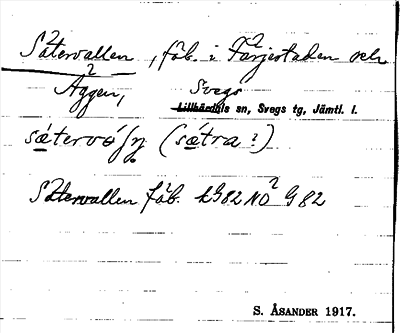 Såtervallen, fäb. i Färjestaden och
Äggen, Svegs
Lillhärdals sn, Svegs tg, Jämtl. l.
(sætra?)
Såtervallen fäb. kG82NO G82
S. ÅSANDER 1917.